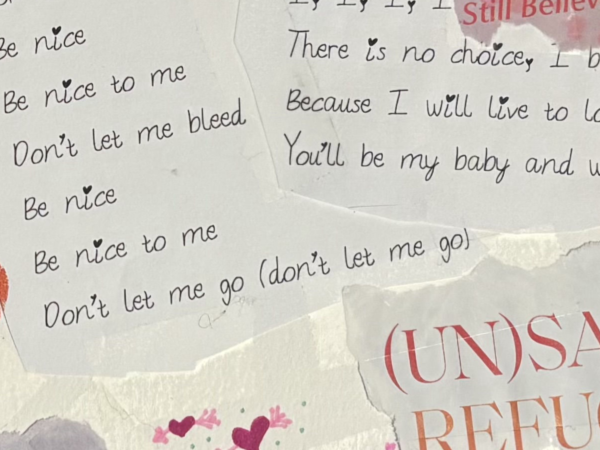 Be nice
Be nice to me
Don't let me bleed
Be nice
Be nice to me
Don't let me go (don't let me go)
Still Believ
There is no choice, I b
Because I will live to lo
You'll be my baby and w
(UN)SA
REFU